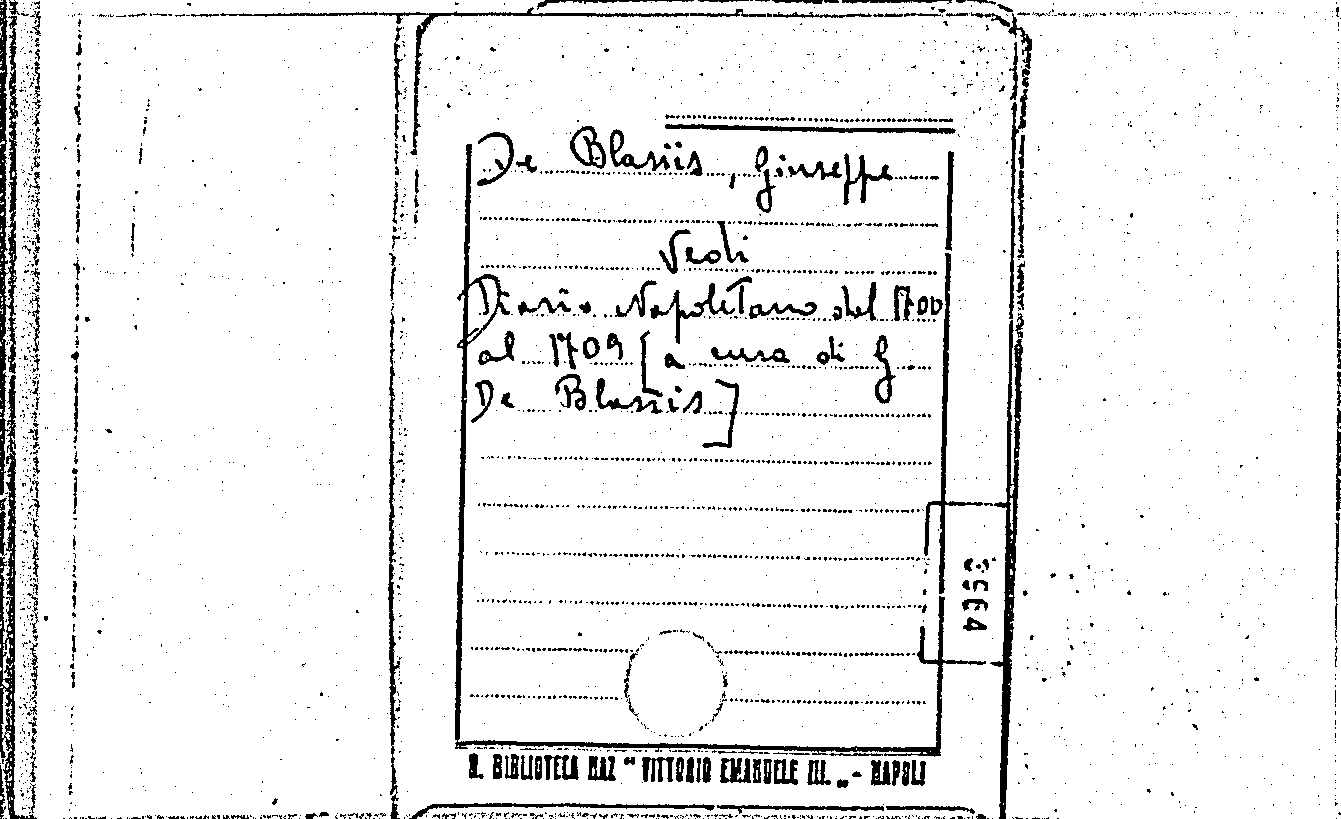 De Blasiis, Giuseppe
Vedi
Diario Napoletano dal 1700
al 1709 [a cura di G.
De Blasiis]
R. BIBLIOTECA NAZ " VITTORIO EMANUELE III. „ - NAPOLI